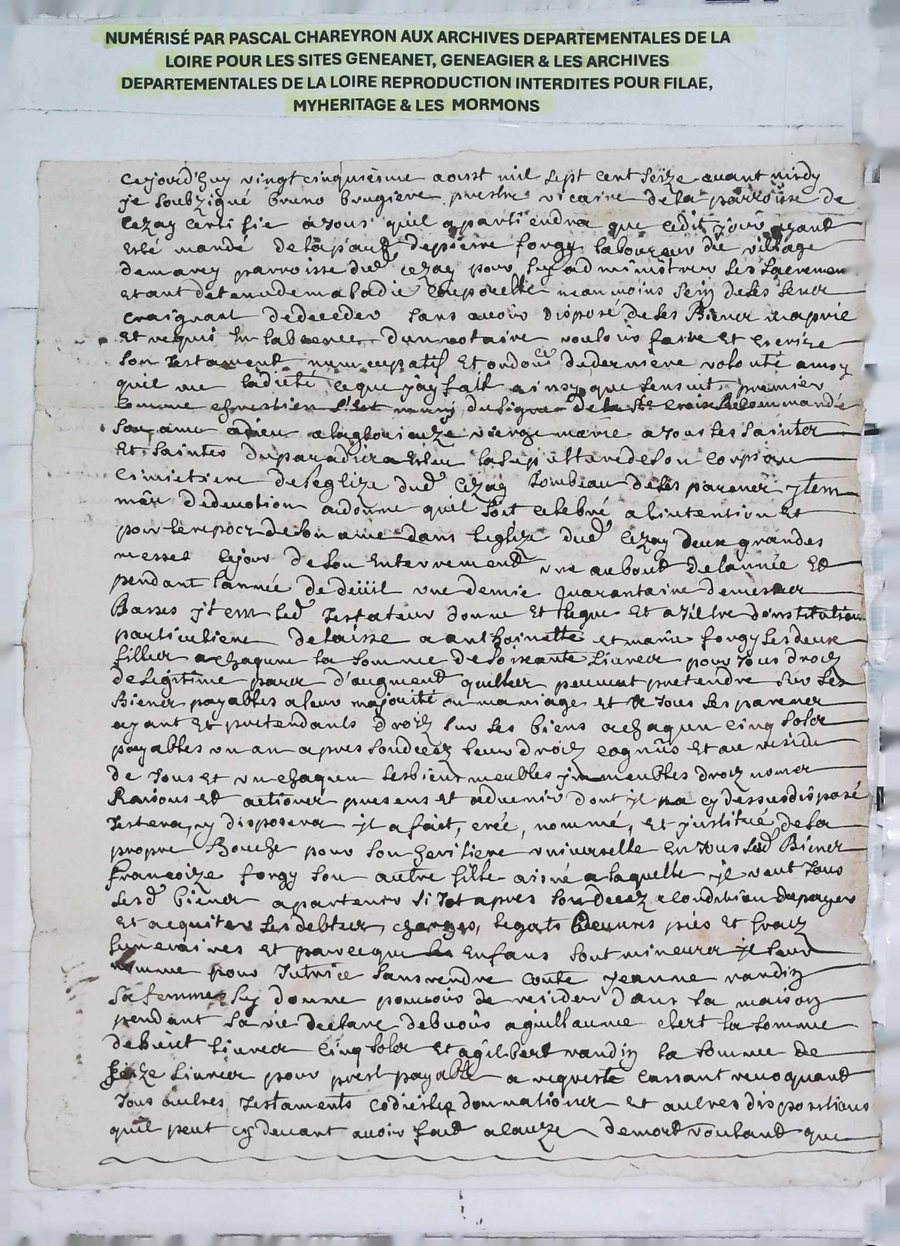 NUMÉRISÉ PAR PASCAL CHAREYRON AUX ARCHIVES DEPARTEMENTALES DE LA
LOIRE POUR LES SITES GENEANET, GENEAGIER & LES ARCHIVES
DEPARTEMENTALES DE LA LOIRE REPRODUCTION INTERDITES POUR FILAE,
MYHERITAGE & LES MORMONS
Cejourd'huy vingt cinquiesme aoust mil sept cent seize avant midy
je soubzigné bruno brugiere prestre vicaire de la parroisse de
Cezay certifie a tous qu'il apartiendra que cedit jour ayant
esté mandé de la part de pierre forgy laboureur du village
de marcy parroisse dud Cezay pour luy administrer les sacremen
etant detenu de maladie corporelle neanmoins sein de ses sens
craignant de deceder sans avoir disposé de ses Biens ma prié
et requis en labsence dun notaire vouloir faire et escrire
son testament nuncupatif et ordonce de derniere volonté ainsy
quil me la dicté ce que jay fait ainsy que sensuit premier
comme chrestien s'est muny du signe de la Ste Croix Recommandé
son ame a dieu a la glorieuze vierge marie a tous les saintes
et saintes du paradis a esleu la sepulture de son corps au
cimetiere de leglize dud Cezay tombeau de ses parens jtem
meu de devotion a donne quil soit celebré a lintention et
pour le repos de son ame dans leglize dud Cezay deux grandes
messes le jour de son enterrement une au bout de lannée et
pendant lannée de deüil une demie quarantaine de messes
Basses jtem led testateur donne et legue et a tiltre dinstitution
particuliere delaisse a anthoinette et marie forgy ses deux
filles a chacune la somme de soixante livres pour tous droitz
de legitime part d'augment quelles peuvent pretendre sur ses
Biens payables a leur majorité ou mariage et a tous ses parens
ayant et pretendants droitz sur ses biens a chacun cinq sols
payables un an apres son decez leurs droitz cognus et au residu
de tous et un chacun ses biens meubles jmmeubles droitz noms
Raisons et actions presens et advenir dont jl na cy dessus disposé
ny disposera jl a fait, creé, nommé, et justitué de sa
propre Bouche pour son heritiere universelle en tous sesd Biens
francoize forgy son autre fille aisnée a laquelle jl veut tous
sesd biens apartenir sitot apres son decez a condition de payer
et acquiter ses debtes, charges, legats œuvres pies et fraiz
funeraires et parce que ses enfans sont mineurs jl leur
nomme pour tutrice sans rendre conte jeanne vandin
sa femme luy donne pouvoir de resider dans sa maison
pendant sa vie declare debvoir a guillaume chert la somme
de huit livres cinq sols et a gilbert vandin la somme de
seize livres pour prest payable a requeste cassant revoquant
tous autres testaments codicille donnations et autres dispositions
quil peut cy devant avoir fait a cauze de mort voulant que